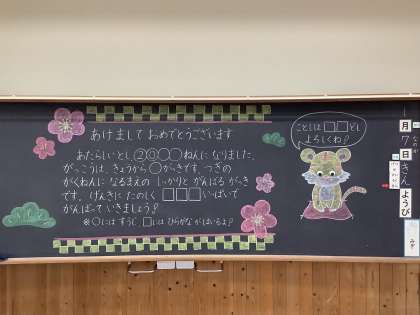 あけまして おめでとうございます
あたらしいとし ②⓪〇〇ねんに なりました。
がっこうは、きょうから〇がっきです。つぎの
がくねんに なるまえの しっかりと がんばる がっき
です。げんきに たのしく □□□いっぱいで
がんばって いきましょう♪
※〇には すうじ、□には ひらがなが はいるよ♪
ことしは□□どし
よろしくね♪
月
7
日
きん
ようび